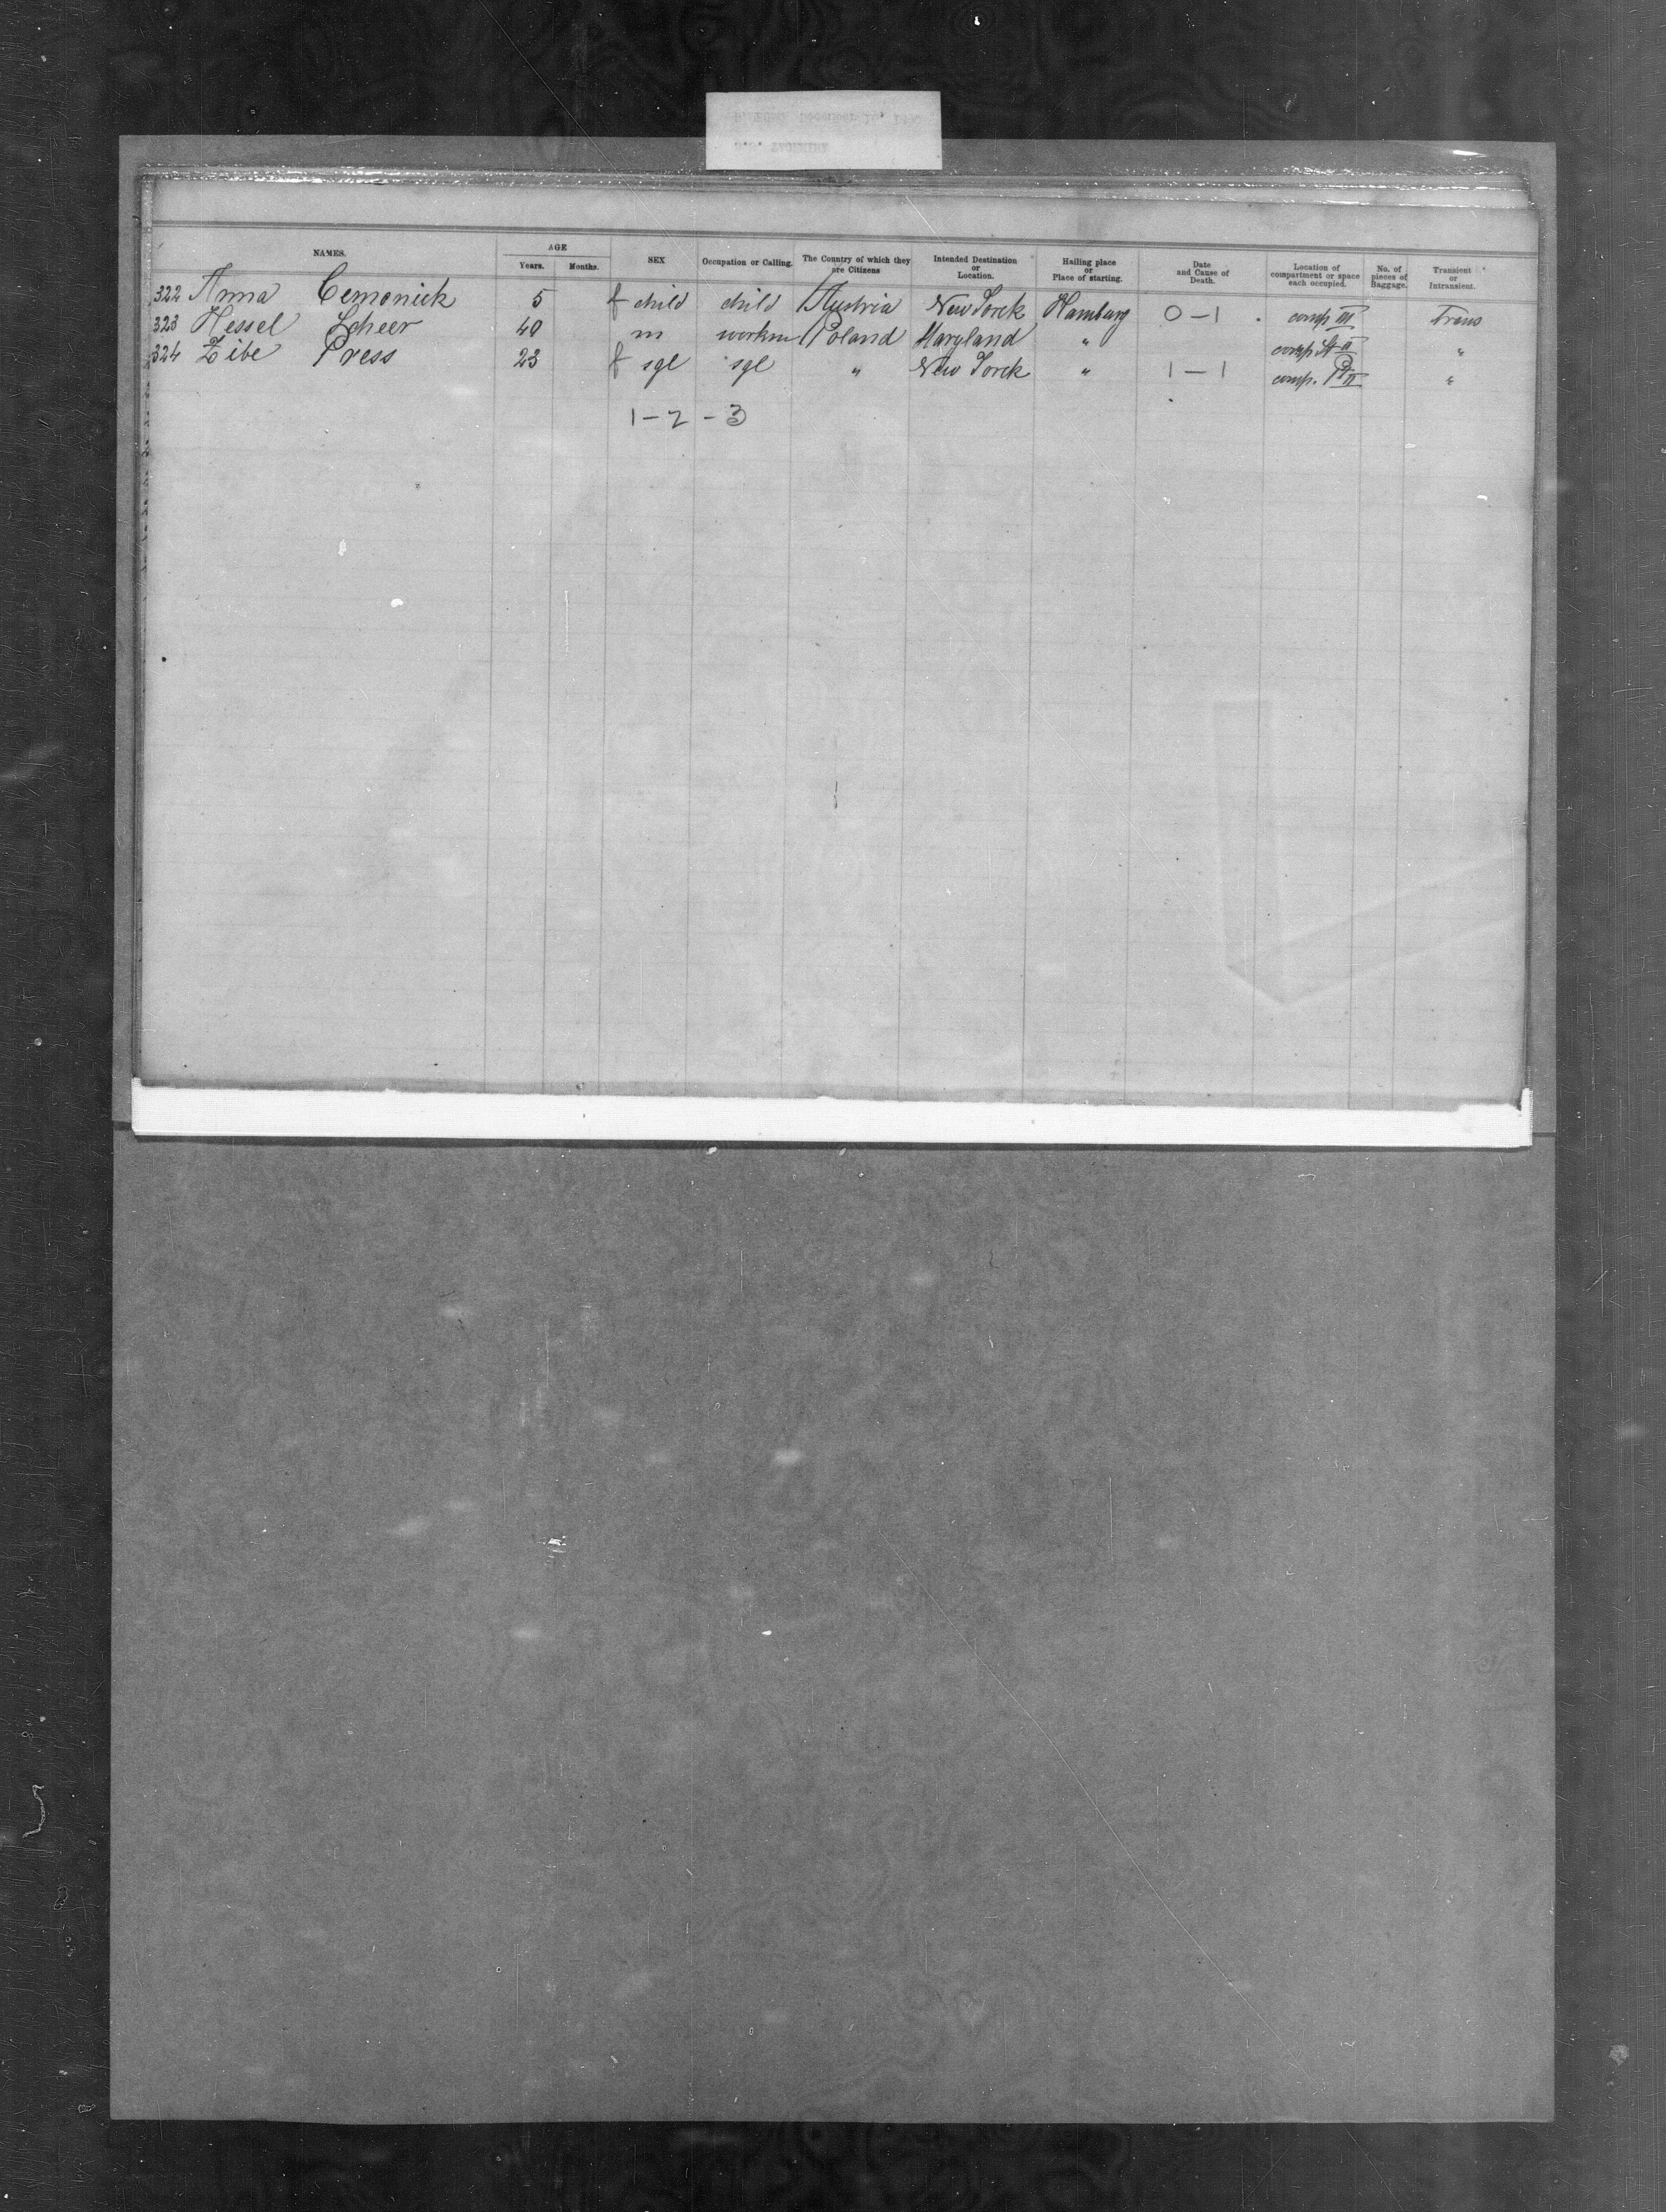 NAMES. AGE Years. Months. SEX Occupation or Calling. The Country of which they are Citizens Intended Destination or Location. Hailing place or Place of starting. Date and Cause of Death. Location of compartment or space each occupied. No. of pieces of Baggage. Transient or Intransient.
322 Anna Cemonick 5 f child child Austria New Yorck Hamburg 0-1 comp III Trans
323 Hessel Scheer 40 m workm Poland Maryland " comp II "
324 Zibe Press 23 f sgl sgl " New Yorck " 1-1 comp. II "
1-2-3